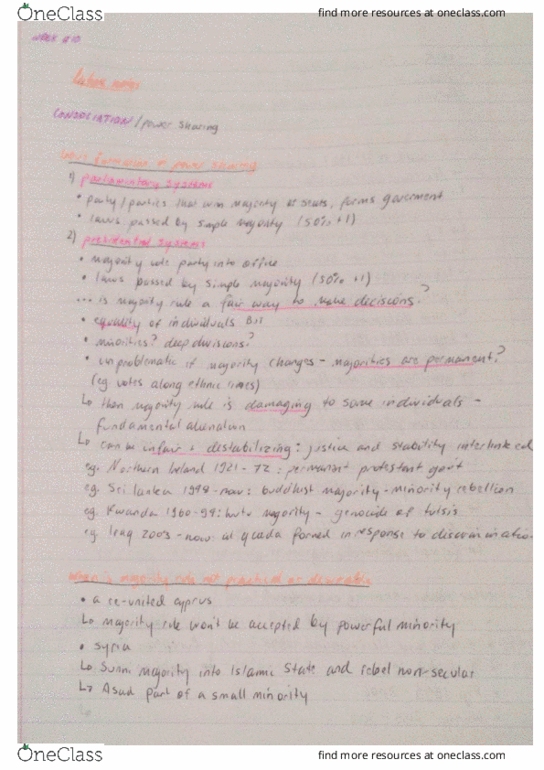 OneClass
find more resources at oneclass.com
WEEK #10
Lecture notes
CONSOCIATION / power sharing
formation + power sharing
1) parliamentary systems
• party/parties that win majority of seats, forms goverment
• laws passed by simple majority (50% +1)
2) presidential systems
• majority vote party into office
• laws passed by simple majority (50% +1)
... is majority rule a fair way to make decisions?
• equality of individuals
• minorities? deep divisions?
• unproblematic if majority changes - majorities are permanent?
(eg. votes along ethnic lines)
↳ then majority rule is damaging to some individuals -
fundamental alienation
↳ can be unfair + destabilizing: justice and stability interlinked
eg. Northern Ireland 1921-72: permanant protestant gov't
eg. Sri Lanka 1948-now: buddhist majority - minority rebellion
eg. Rwanda 1960-94: hutu majority - genocide of tutsis
eg. Iraq 2003-now: al qaeda formed in response to discrimination
when is majority rule not practical or desireable
• a re-united cyprus
↳ majority rule won't be accepted by powerful minority
• syria
↳ Sunni majority into Islamic State and rebel non-secular
↳ Asad part of a small minority
OneClass
find more resources at oneclass.com